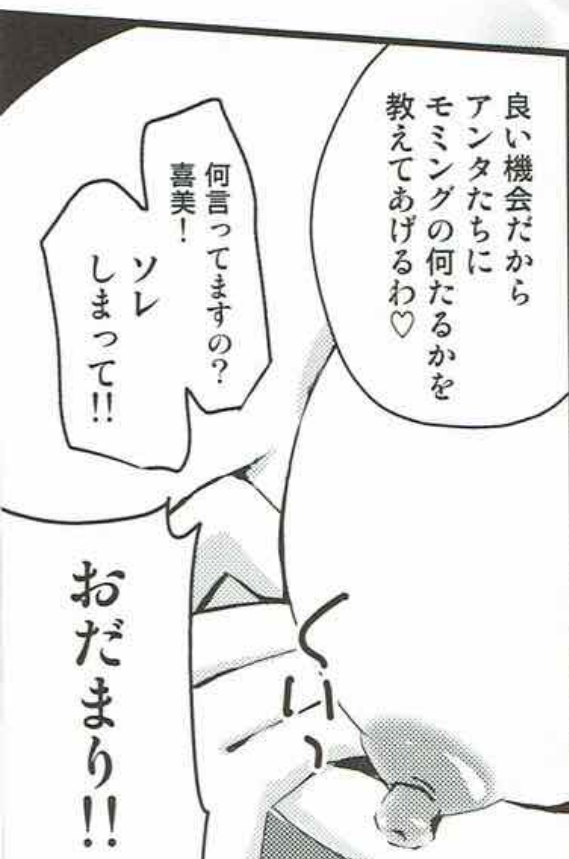 良い機会だから
アンタたちに
モミングの何たるかを
教えてあげるわ♡
何言ってますの?
喜美!
ソレ
しまって!!
くいっ
おだまり!!